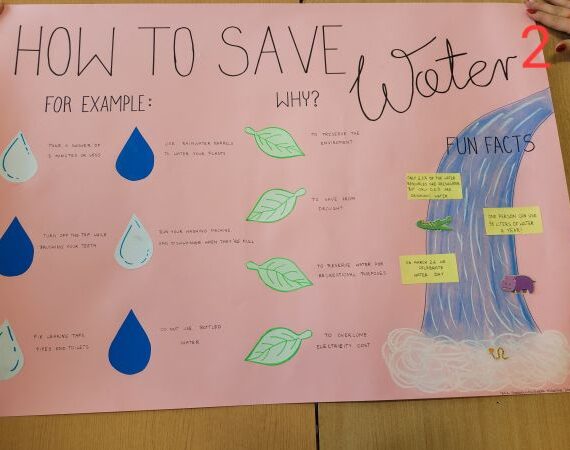 HOW TO SAVE
Water
2
FOR EXAMPLE:
TAKE A SHOWER OF
5 MINUTES OR LESS
USE RAINWATER BARRELS
TO WATER YOUR PLANTS
TURN OFF THE TAP WHILE
BRUSHING YOUR TEETH
RUN YOUR WASHING MACHINE
AND DISHWASHER WHEN THEY'RE FULL
FIX LEAKING TAPS,
PIPES AND TOILETS
DO NOT USE BOTTLED
WATER
WHY?
TO PRESERVE THE
ENVIRONMENT
TO SAVE FROM
DROUGHT
TO RESERVE WATER FOR
RECREATIONAL PURPOSES
TO OVERCOME
ELECTRICITY COST
FUN FACTS
ONLY 2,5% OF THE WATER
RESOURCES ARE FRESHWATER
BUT ONLY 0,3% ARE
DRINKING WATER
ONE PERSON CAN USE
LITERS OF WATER
A YEAR!
ON MARCH 22 WE
CELEBRATE
WATER DAY